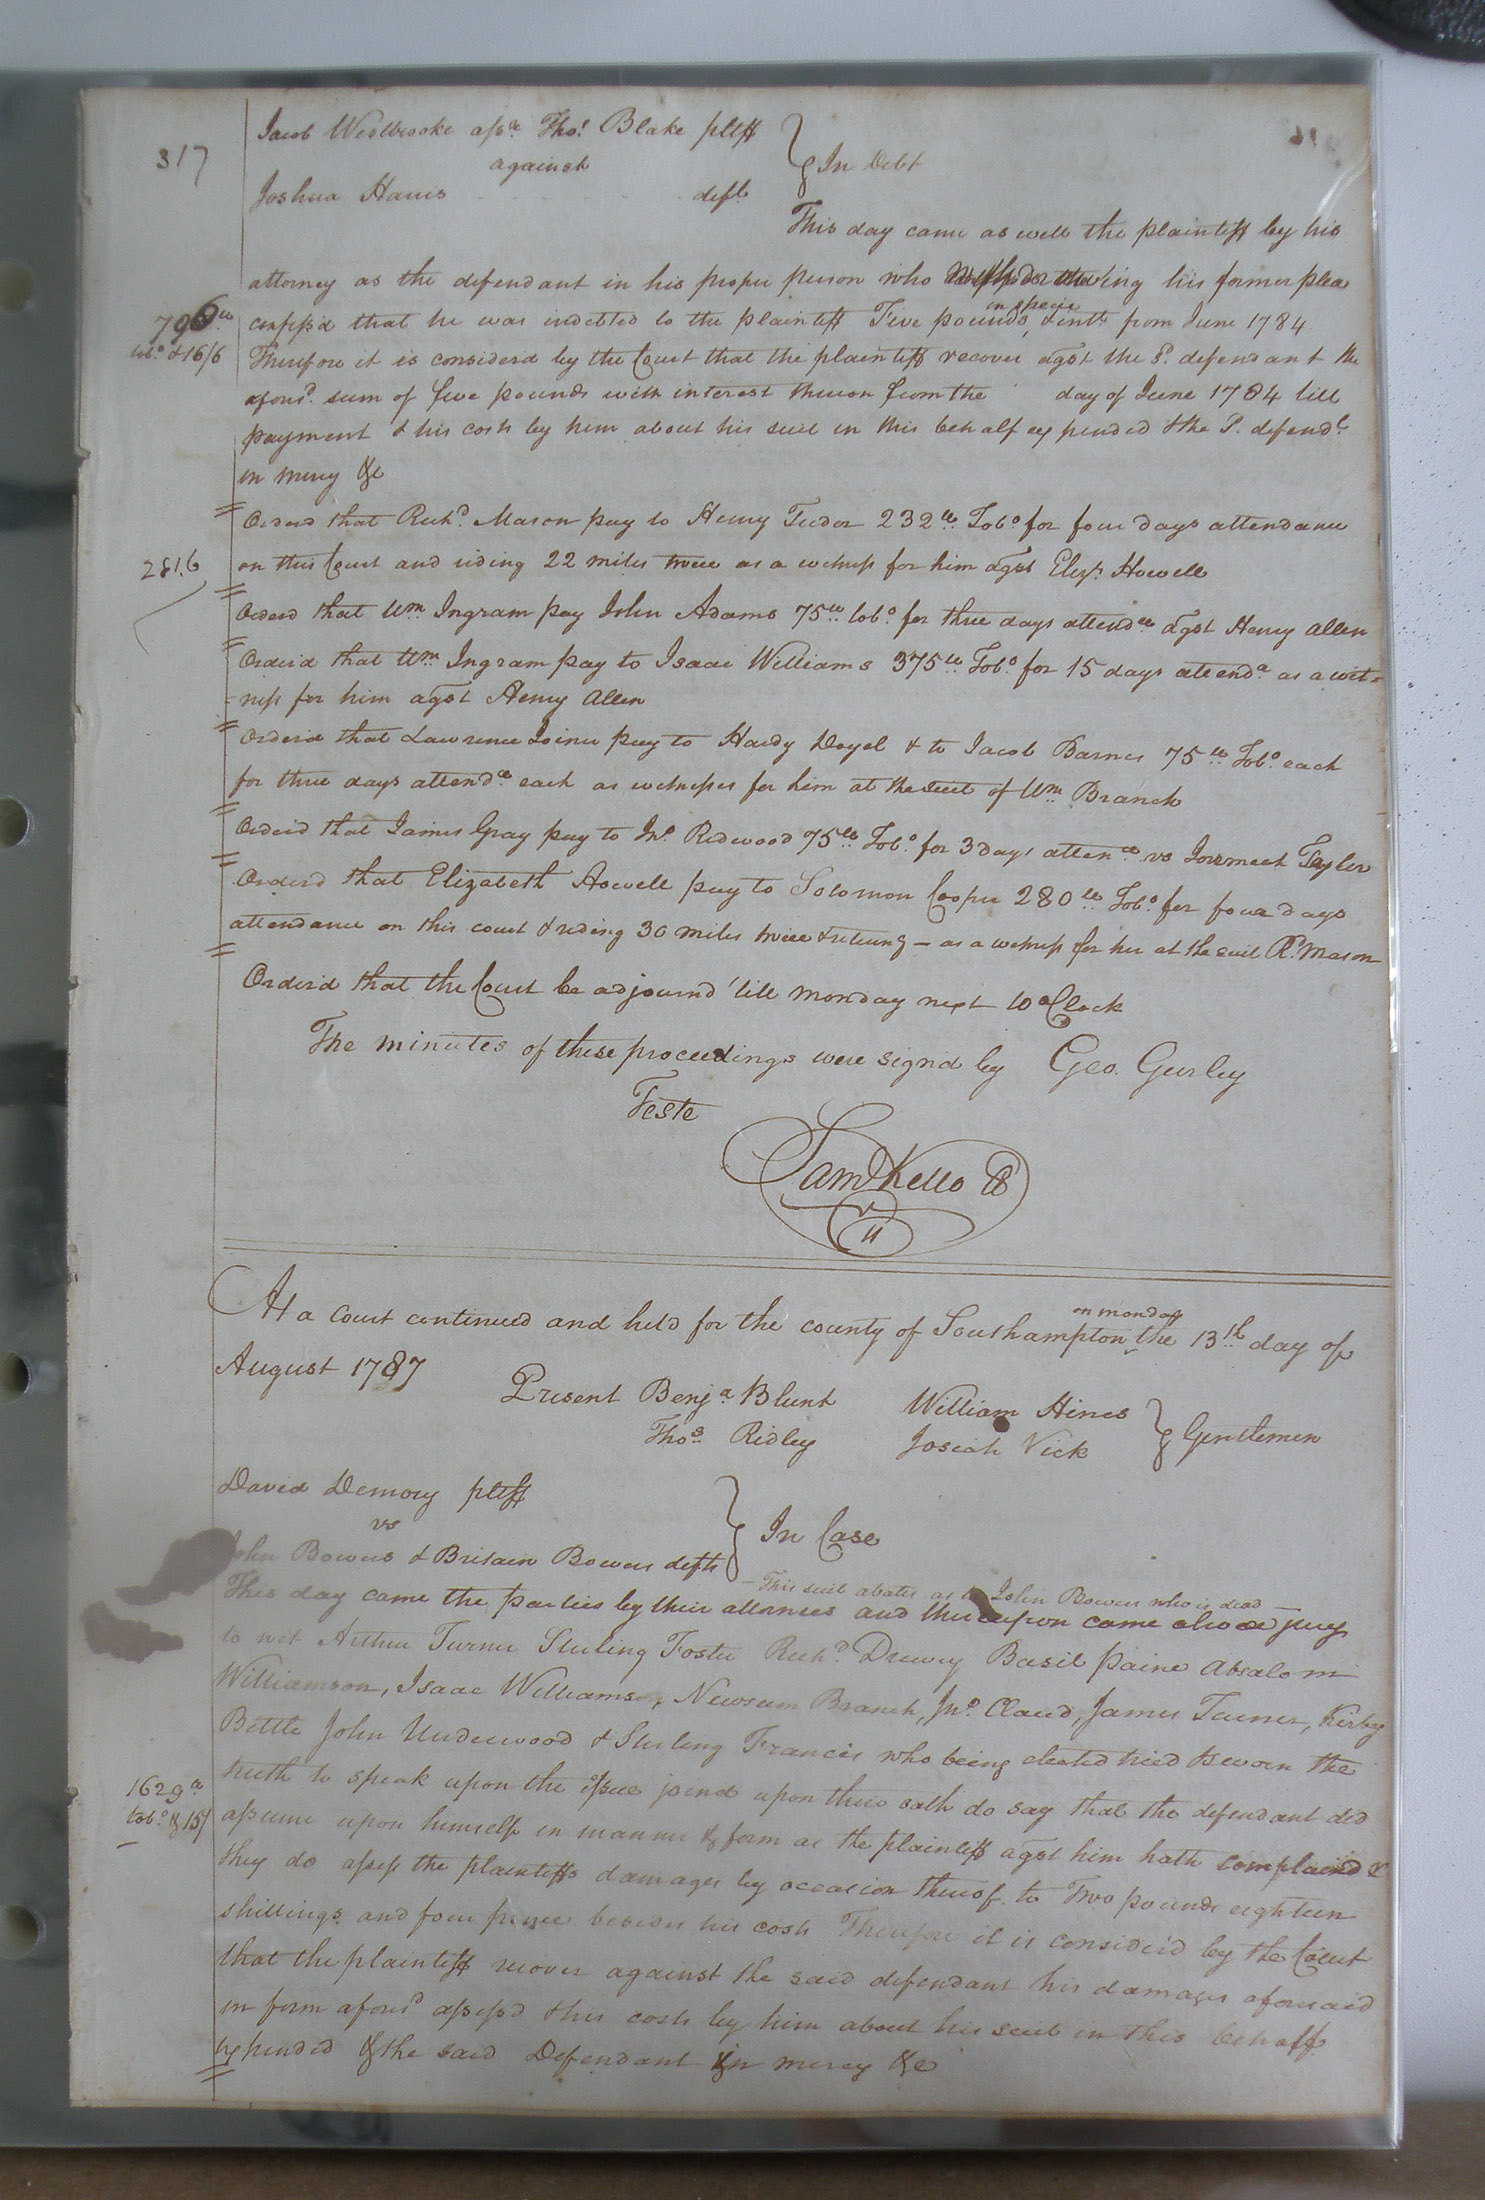 317
Jacob Westbrooke assee. Thos. Blake pltff
against } In Debt
Joshua Harris deft.
This day came as well the plaintiff by his
attorney as the defendant in his proper person who ing his former plea
796 lb confess'd that he was indebted to the plaintiff Five pounds in specie & intt. from June 1784
tobo. & 16/6 Therefore it is considerd by the Court that the plaintiff recover agst the sd. defendant the
aforsd. sum of five pounds with interest thereon from the day of June 1784 till
payment & his costs by him about his suit in this behalf expended & the sd. defendt.
in mercy &c
Orderd that Richd. Mason pay to Henry Tudor 232 lb Tobo. for four days attendance
281.6 on this Court and riding 22 miles twice as a witness for him agst Elizt. Howell
Orderd that Wm. Ingram pay John Adams 75 lb tobo. for three days attendce agst Henry Allen
Orderid that Wm. Ingram pay to Isaac Williams 375 lb Tobo. for 15 days attenda. as a wit=
-ness for him agst Henry Allen
Orderid that Lawrence Joiner pay to Hardy Doyel & to Jacob Barnes 75 lb Tobo. each
for three days attendce each as witnesses for him at the suit of Wm. Branch
Orderid that James Gray pay to Jno. Redwood 75 lb Tobo. for 3 days attence vs Taylor
Orderd that Elizabeth Howell pay to Solomon Cooper 280 lb Tobo. for four days
attendance on this court & riding 30 miles twice & returng - as a witness for her at the suit Rd. Mason
Orderid that the Court be adjournd 'till monday next 10 oClock
The minutes of these proceedings were signd by Geo. Gurley
Teste
Saml Kello
At a Court continued and held for the county of Southampton on monday the 13th day of
August 1787
Present Benja. Blunt William Hines
Thos. Ridley Josiah Vick } Gentlemen
David Demory pltff
vs } In Case
John Bowers & Britain Bowers defts
- This suit abates as to John Bowers who is dead -
This day came the parties by their attornies and thereupon came also a jury
to wit Arthur Turner Sterling Foster Richd. Drewry Basil Paine Absalom
Williamson, Isaac Williams, Newsum Branch, Jno. Claud, James Turner, Kirby
Bittle John Underwood & Sterling Francis who being elected tried & sworn the
truth to speak upon the issue joind upon their oath do say that the defendant did
1629 a
tobo. & 15/ assume upon himself in manner & form as the plaintiff agst him hath complained &
they do assess the plaintiffs damages by occasion thereof to Two pounds eighteen
shillings and four pence besides his costs Therefore it is considerd by the Court
that the plaintiff recover against the said defendant his damages aforesaid
in form aforsd. assess'd & his costs by him about his suit in this behalf
expended & the said Defendant in mercy &c